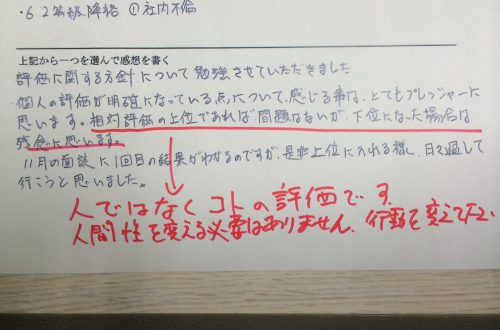 ・6 2等級降格 ①社内不倫
上記から一つを選んで感想を書く
評価に関する方針について勉強させていただきました
個人の評価が明確になっている点について、感じる事は、とてもプレッシャーに
思います。相対評価の上位であれば問題はないが、下位になった場合は
残念に思います。
11月の面談に1回目の結果がわかるのですが、是非上位に入れる様に、日々過して
行こうと思いました。
人ではなくコトの評価です
人間性を変える必要はありません、行動を変えて下さい